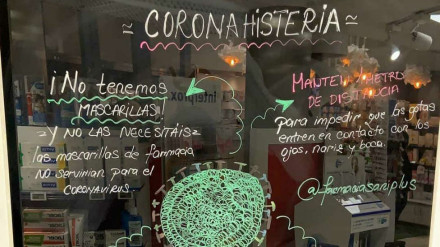 ≈ CORONAHISTERIA ≈
¡No tenemos
MASCARILLAS!
= Y NO LAS NECESITÁIS =
las mascarillas de farmacia
NO servirían para el
CORONAVIRUS.
MANTEN 1 METRO
DE DISTANCIA
para impedir que las gotas
entren en contacto con los
ojos, nariz y boca.
@farmaciasaniplus
interprox